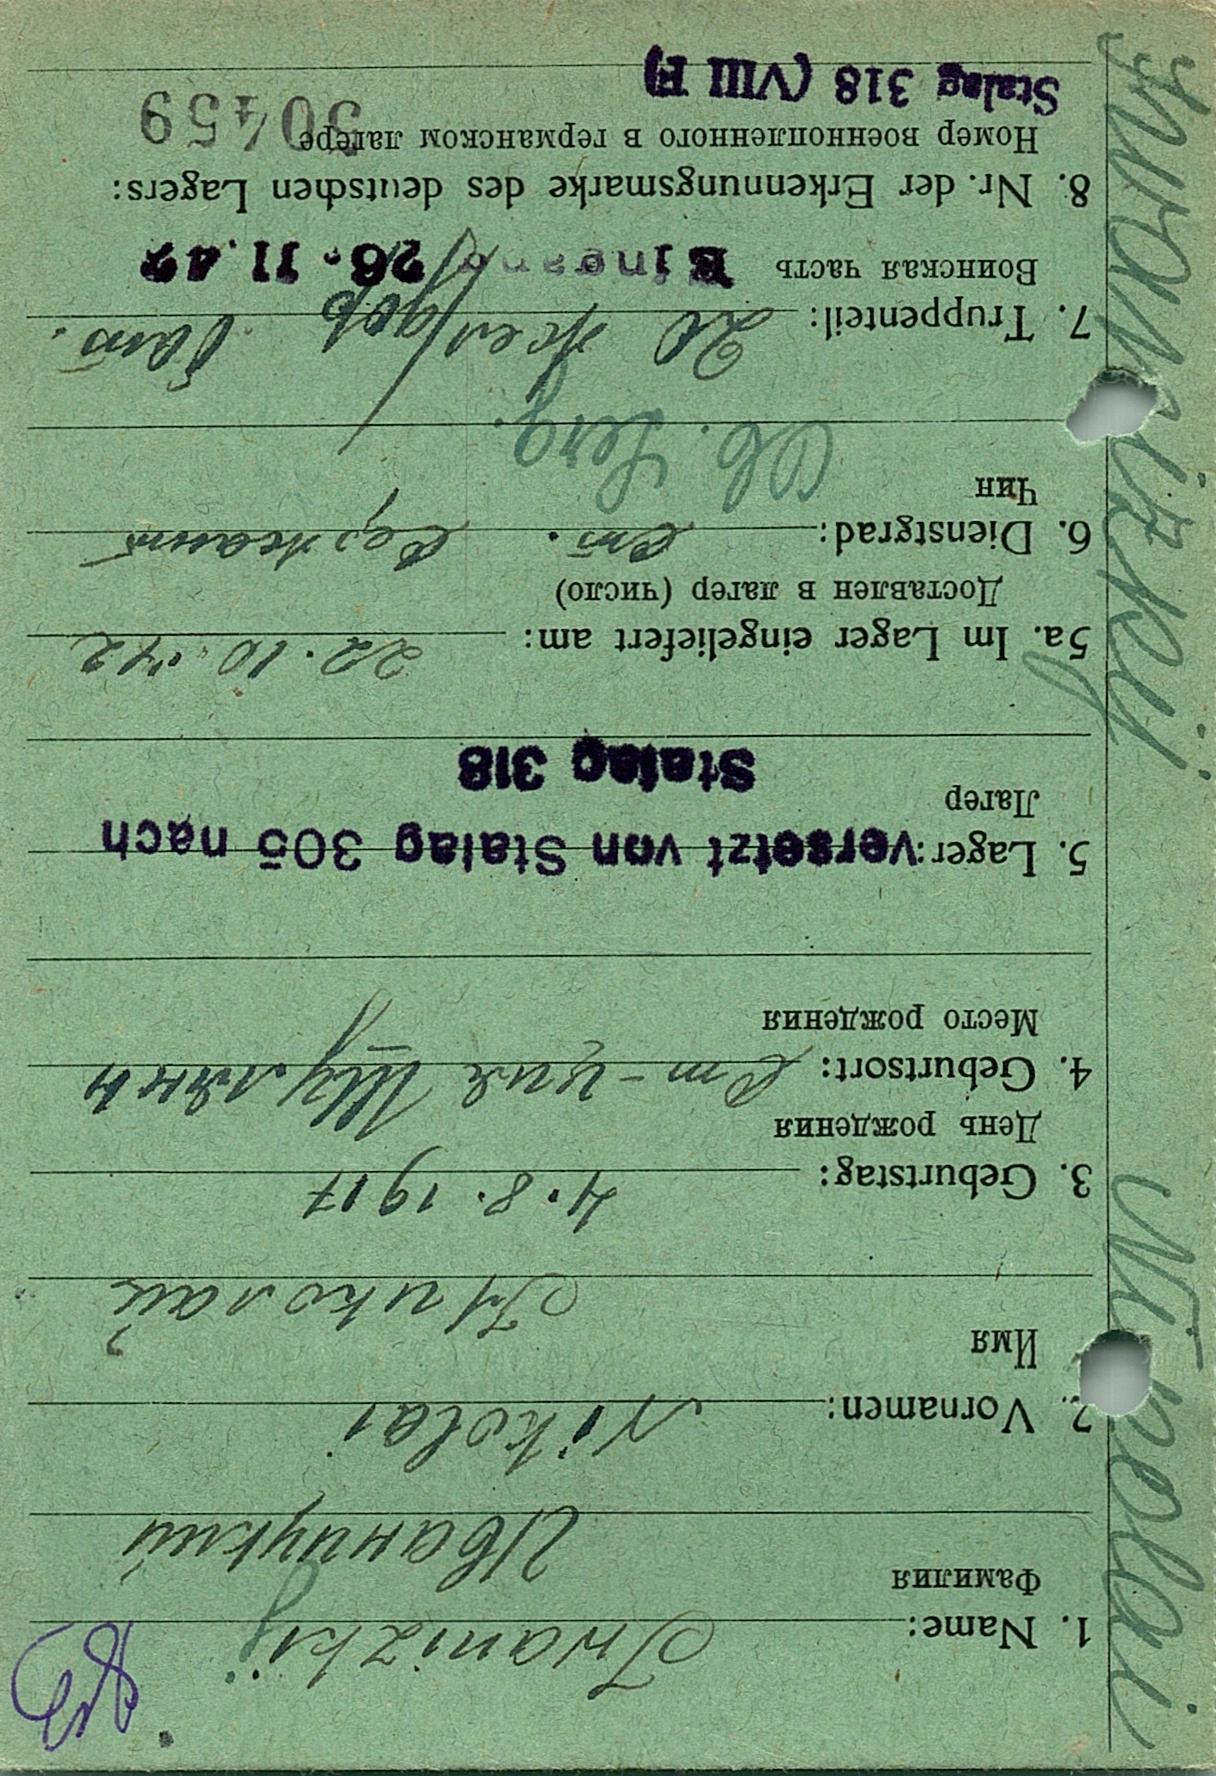 Iwanizkij Nikolai
1. Name: Iwanizkij
Фамилия
Иваницкий
2. Vornamen: Nikolai
Имя
Николай
3. Geburtstag: 4.8.1917
День рождения
4. Geburtsort: Ст-ция Шулянн
Место рождения
5. Lager: Versetzt von Stalag 305 nach
Лагер
Stalag 318
5a. Im Lager eingeliefert am: 22.10.42
Доставлен в лагер (число)
6. Dienstgrad: Ст. Сержант
Чин
Ob. Serg.
7. Truppenteil: 20 жел/дор бат.
Воинская часть Eingang 26.11.42
8. Nr. der Erkennungsmarke des deutschen Lagers:
Номер военнопленного в германском лагере 30459
Stalag 318 (VIII F)